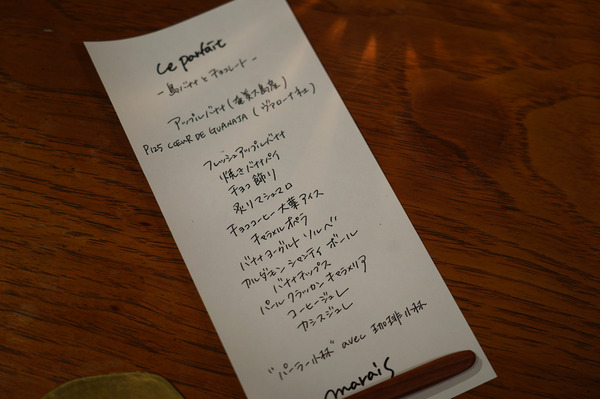 Le parfait
- 島バナナとチョコレート -
アップルバナナ(奄美大島産)
P125 CŒUR DE GUANAJA (ヴァローナ社)
フレッシュアップルバナナ
焼きバナナパイ
チョコ飾り
炙りマシュマロ
チョココーヒー大葉アイス
キャラメルオペラ
バナナヨーグルトソルベ
カルダモンシャンティボール
バナナチップス
パールクラッカン キャラメリア
コーヒージュレ
カシスジュレ
"パーラー小林" avec 珈琲小林
marais